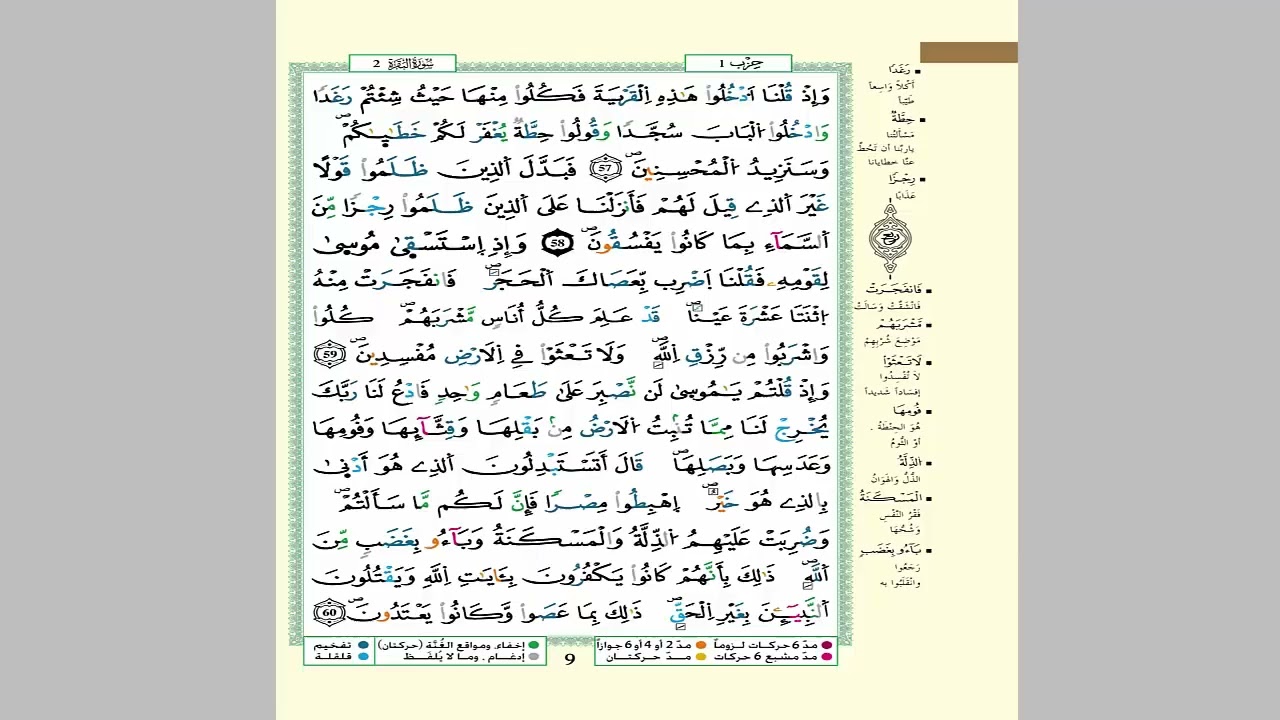 سُورَةُ البَقَرَة 2
حِزْب 1
وَإِذْ قُلْنَا اَدْخُلُوا هَٰذِهِ اِلْقَرْيَةَ فَكُلُوا مِنْهَا حَيْثُ شِئْتُمْ رَغَدًا
وَادْخُلُوا اُلْبَابَ سُجَّدًا وَقُولُوا حِطَّةٌ يُغْفَرْ لَكُمْ خَطَٰيَٰكُمْ
وَسَنَزِيدُ اُلْمُحْسِنِينَ 57 فَبَدَّلَ اَلذِينَ ظَلَمُوا قَوْلًا
غَيْرَ اَلذِے قِيلَ لَهُمْ فَأَنزَلْنَا عَلَى اَلذِينَ ظَلَمُوا رِجْزًا مِّنَ
اَلسَّمَآءِ بِمَا كَانُوا يَفْسُقُونَ 58 وَإِذِ اِسْتَسْقَىٰ مُوسَىٰ
لِقَوْمِهِۦ فَقُلْنَا اَضْرِب بِّعَصَاكَ اَلْحَجَرَ فَانفَجَرَتْ مِنْهُ
اُثْنَتَا عَشْرَةَ عَيْنًا قَدْ عَلِمَ كُلُّ أُنَاسٍ مَّشْرَبَهُمْ كُلُوا
وَاشْرَبُوا مِن رِّزْقِ اِللَّهِ وَلَا تَعْثَوْا فِے اِلَارْضِ مُفْسِدِينَ 59
وَإِذْ قُلْتُمْ يَٰمُوسَىٰ لَن نَّصْبِرَ عَلَىٰ طَعَامٍ وَٰحِدٍ فَادْعُ لَنَا رَبَّكَ
يُخْرِجْ لَنَا مِمَّا تُنۢبِتُ اُلَارْضُ مِنۢ بَقْلِهَا وَقِثَّآئِهَا وَفُومِهَا
وَعَدَسِهَا وَبَصَلِهَا قَالَ أَتَسْتَبْدِلُونَ اَلذِے هُوَ أَدْنَىٰ
بِالذِے هُوَ خَيْرٌ اِهْبِطُوا مِصْرًا فَإِنَّ لَكُم مَّا سَأَلْتُمْ
وَضُرِبَتْ عَلَيْهِمُ اُلذِّلَّةُ وَالْمَسْكَنَةُ وَبَآءُو بِغَضَبٍ مِّنَ
اَللَّهِ ذَٰلِكَ بِأَنَّهُمْ كَانُوا يَكْفُرُونَ بِـَٔايَٰتِ اِللَّهِ وَيَقْتُلُونَ
اَلنَّبِيٓـِٕينَ بِغَيْرِ اِلْحَقِّ ذَٰلِكَ بِمَا عَصَوا وَّكَانُوا يَعْتَدُونَ 60
رَغَدًا
أَكْلاً وَاسِعاً
طَيِّباً
حِطَّةٌ
مَسْأَلَتُنَا
يَا رَبَّنَا أن تَحُطَّ
عنَّا خطايانا
رِجْزًا
عَذَابًا
رُبع
فَانفَجَرَتْ
فَانْشَقَّتْ وَسَالَتْ
مَّشْرَبَهُمْ
مَوْضِعَ شُرْبِهِمْ
لَا تَعْثَوْا
لاَ تُفْسِدُوا
إفساداً شديداً
فُومِهَا
هُوَ الحِنْطَةُ .
أوْ الثُّومُ
اُلذِّلَّةُ
الذُّلُّ وَالهَوَانُ
اَلْمَسْكَنَةُ
فَقْرُ النَّفْسِ
وَشُحُّهَا
بَآءُو بِغَضَبٍ
رَجَعُوا
وانْقَلَبُوا به
مدّ 6 حركات لـزوماً مدّ 2 أو 4 أو 6 جوازاً
مدّ مشبع 6 حركات مـدّ حركتـان
إخفاء، ومواقع الغُنَّة (حركتان) تفخيم
إدغـام ، ومـا لا يُلفـظ قلقلة
9